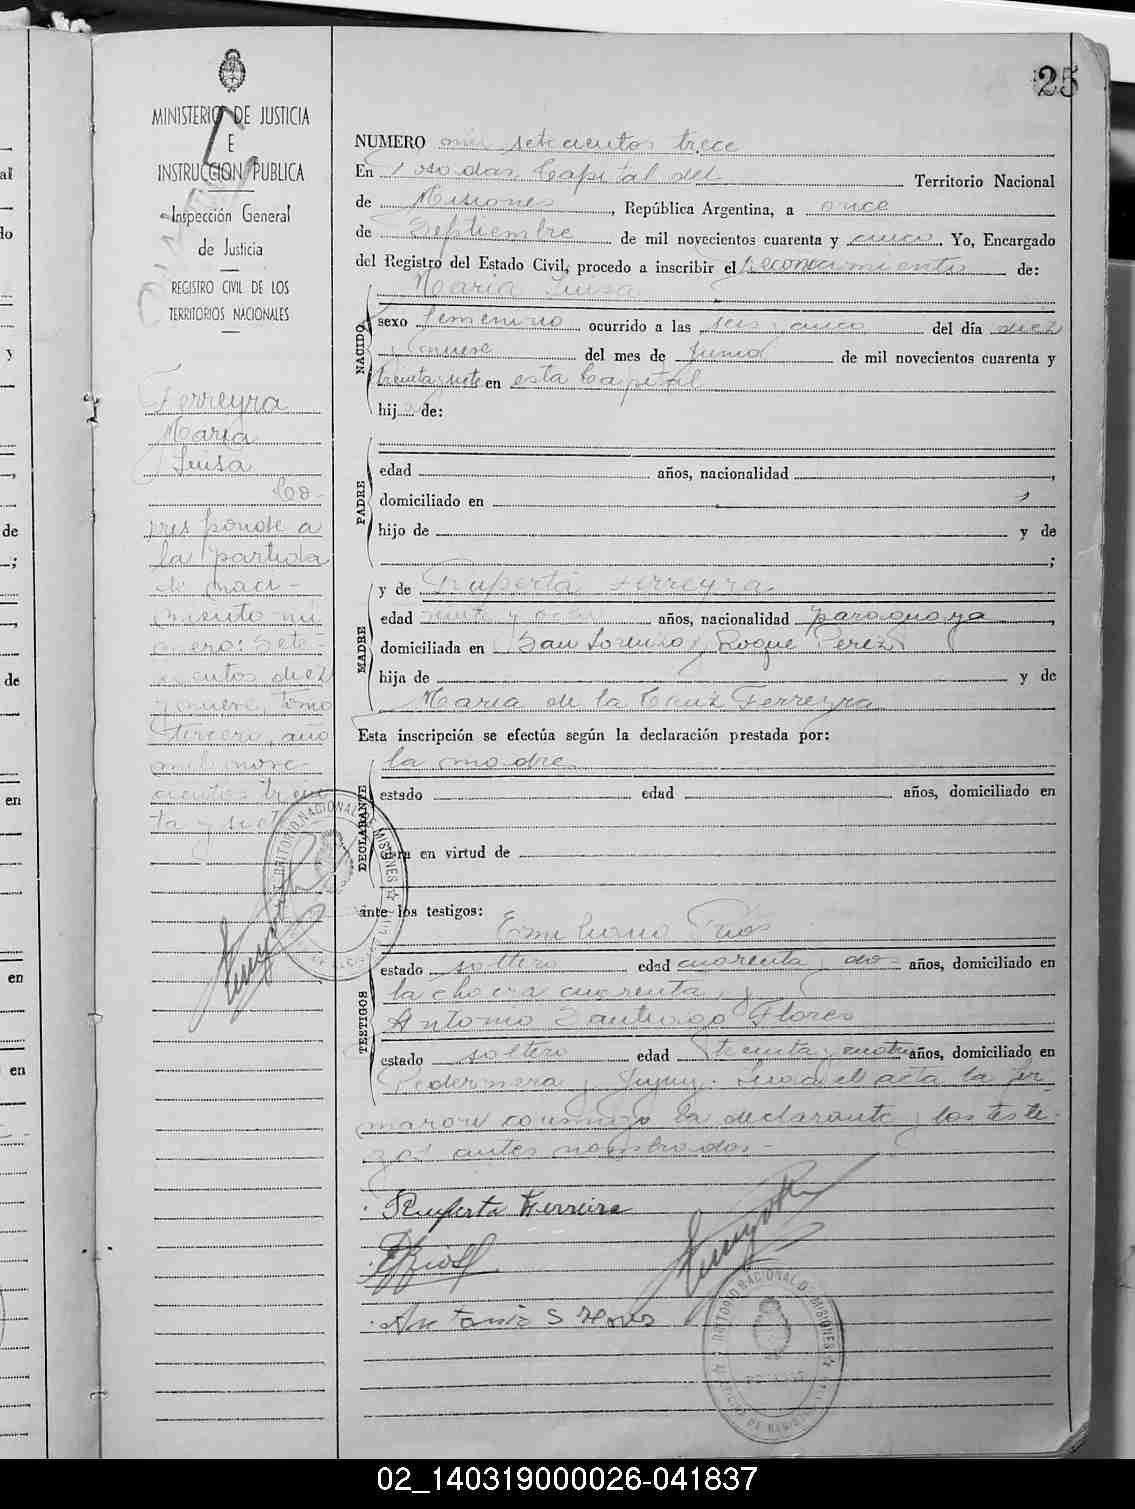 25
MINISTERIO DE JUSTICIA
E
INSTRUCCION PUBLICA
Inspección General
de Justicia
REGISTRO CIVIL DE LOS
TERRITORIOS NACIONALES
Ferreyra
Maria
Luisa
Co-
rresponde a
la partida
de naci-
miento nú
mero: Sete-
cientos diez
y nueve, Tomo
tercero, año
mil nove-
cientos trein
ta y siete
NUMERO mil setecientos trece
En Posadas Capital del Territorio Nacional
de Misiones, República Argentina, a once
de Septiembre de mil novecientos cuarenta y cinco. Yo, Encargado
del Registro del Estado Civil, procedo a inscribir el reconocimiento de:
Maria Luisa
NACIDO
sexo femenino ocurrido a las seis y cinco del día diez
y nueve del mes de Junio de mil novecientos cuarenta y
treinta y siete en esta Capital
hij de:
PADRE
edad años, nacionalidad ,
domiciliado en
hijo de y de
;
MADRE
y de Ruperta Ferreyra
edad años, nacionalidad paraguaya,
domiciliada en San Lorenzo y Roque Perez
hija de y de
Maria de la Cruz Ferreyra
Esta inscripción se efectúa según la declaración prestada por:
la madre
DECLARANTE
estado edad años, domiciliado en
obra en virtud de
ante los testigos:
TESTIGOS
Emiliano Rios
estado soltero edad cuarenta y dos años, domiciliado en
la chacra cuarenta, y
Antonio Santiago Flores
estado soltero edad treinta y cuatro años, domiciliado en
Pedernera y Jujuy. Leida el acta la fir
maron conmigo la declarante y los testi-
gos antes nombrados-
Ruperta Ferreira
Antonio S Flores
TERRITORIO NACIONAL DE MISIONES
TERRITORIO NACIONAL DE MISIONES
02_140319000026-041837